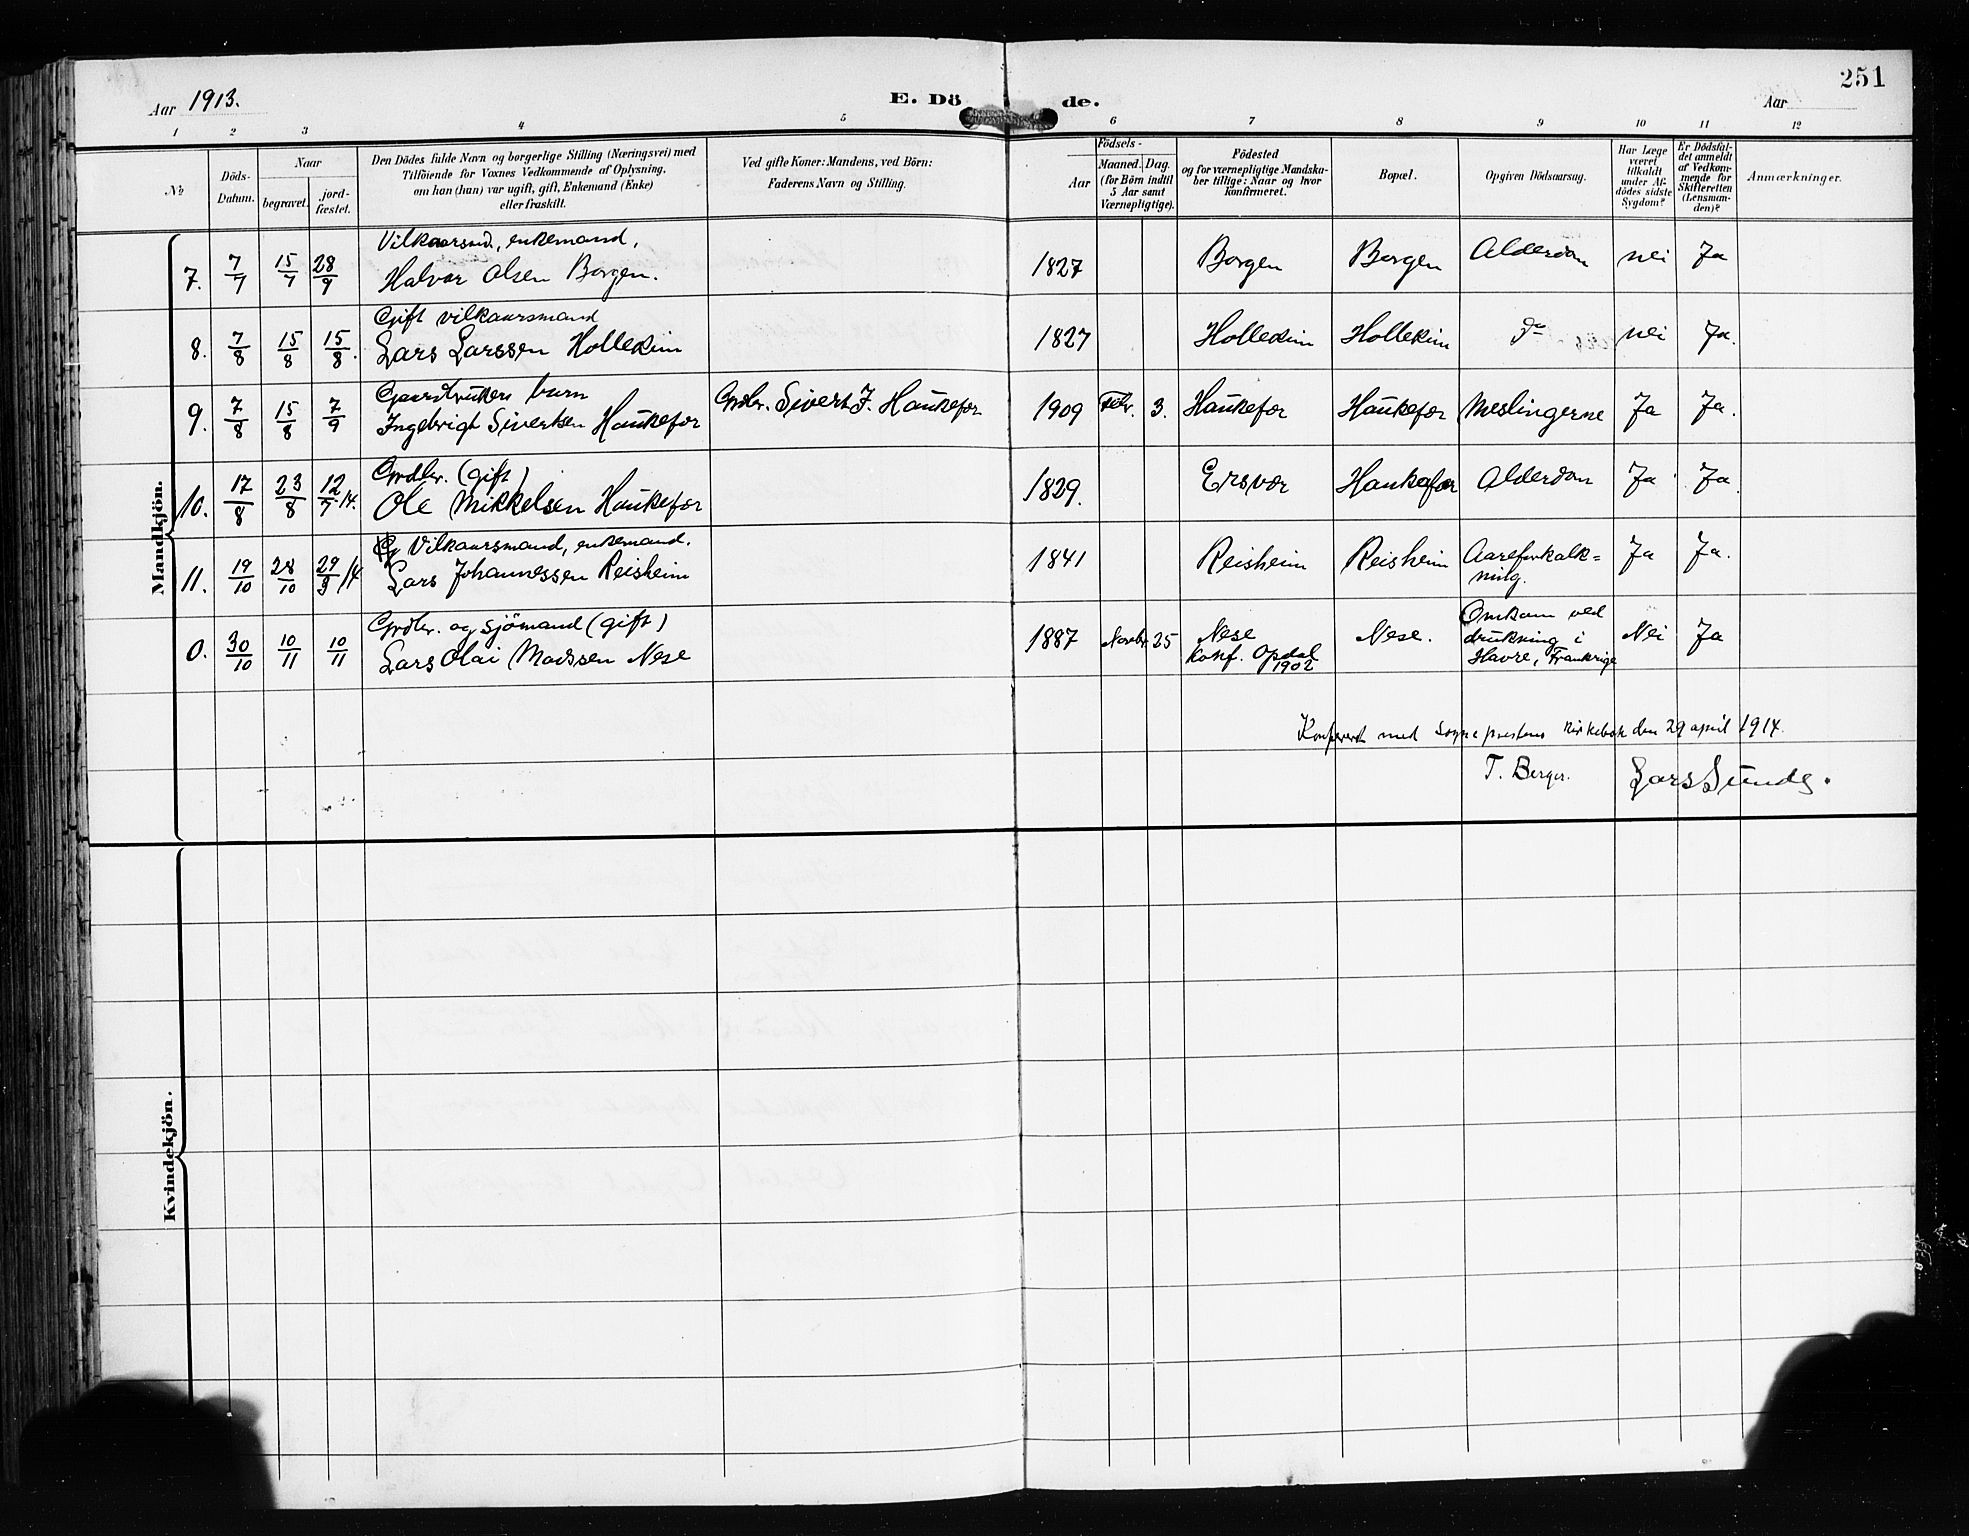 251
Aar 1913.
E. Dö de.
Aar
1 2 3 4 5 6 7 8 9 10 11 12
No
Döds-
Datum.
Naar
begravet.
jord-
fæstet.
Den Dödes fulde Navn og borgerlige Stilling (Næringsvei) med
Tilföiende for Voxnes Vedkommende af Oplysning,
om han (hun) var ugift, gift, Enkemand (Enke)
eller fraskilt.
Ved gifte Koner: Mandens, ved Börn:
Faderens Navn og Stilling.
Födsels-
Aar
Maaned. Dag.
(for Börn indtil
5 Aar samt
Værnepligtige).
Födested
og for værnepligtige Mandska-
ber tillige: Naar og hvor
konfirmeret.
Bopæl.
Opgiven Dödsaarsag.
Har Læge
været
tilkaldt
under Af-
dödes sidste
Sygdom?
Er Dödsfal-
det anmeldt
af Vedkom-
mende for
Skifteretten
(Lensman-
den)?
Anmærkninger.
Mandkjön.
Vilkaarsmd., enkemand,
7. 7/7 15/7 28/9 Halvor Olsen Borgen. 1827 Borgen Borgen Alderdom nei Ja
Gift vilkaarsmand
8. 7/8 15/8 15/8. Lars Larssen Hollekim 1827 Hollekim Hollekim do nei Ja.
Gaardbrukers barn
9. 7/8 15/8 7/9 Ingebrigt Sivertsen Haukefær Grdbr. Sivert J. Haukefær 1909 Febr. 3. Haukefær Haukefær Meslingerne Ja Ja.
Grdbr. (gift)
10. 17/8 23/8 12/7 14. Ole Mikkelsen Haukefær 1829. Ersvær Haukefær Alderdom Ja Ja.
Vilkaarsmand, enkemand.
11. 19/10 28/10 29/3 14 Lars Johannessen Reisheim 1841 Reisheim Reisheim Aareforkalk=
ning. Ja Ja.
Grdbr. og sjömand (gift)
0. 30/10 10/11 10/11 Lars Olai Madssen Nese 1887 Novbr. 25 Nese
Konf. Opdal
1902 Nese. Omkom ved
drukning i
Havre, Frankrige Nei Ja
Konferert med Sogneprestens Kirkebok den 29 april 1914.
T. Berger. Lars Sunde.
Kvindekjön.